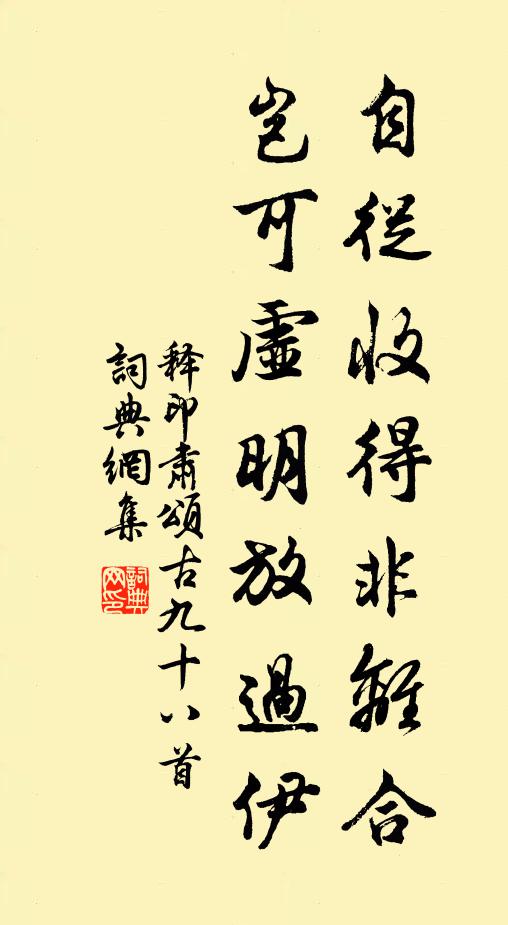 自從收得非離合
豈可虛明放過伊
釋印肅頌古九十八首
詞典網集
詞典網印